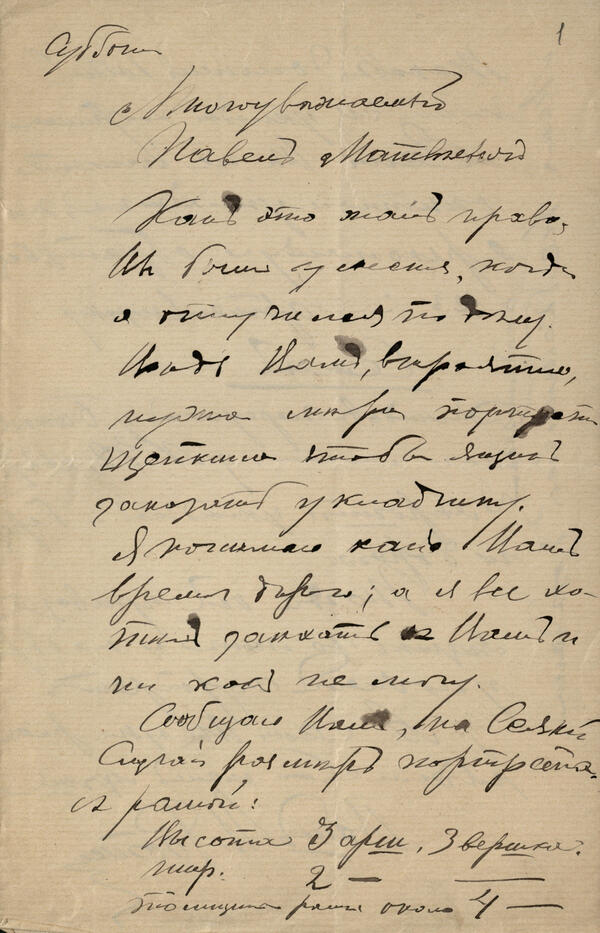 Суббота
1
Многоуважаемый
Павел Матвеевич
Какъ это жаль право,
Вы были у меня, когда
я отлучился по дому.
Вамъ, вероятно,
нужна мера портрета
Щепкина чтобы ящикъ
заказать укладчику.
Я понимаю какъ Вамъ
время дорого; а я все хо-
телъ заехать къ Вамъ и
ни какъ не могу.
Сообщаю Вамъ, на всякий
случай размеръ портрета
съ рамой:
Высота 3 арш. 3 вершка.
шир. 2 — —
толщина рамы около 4 —